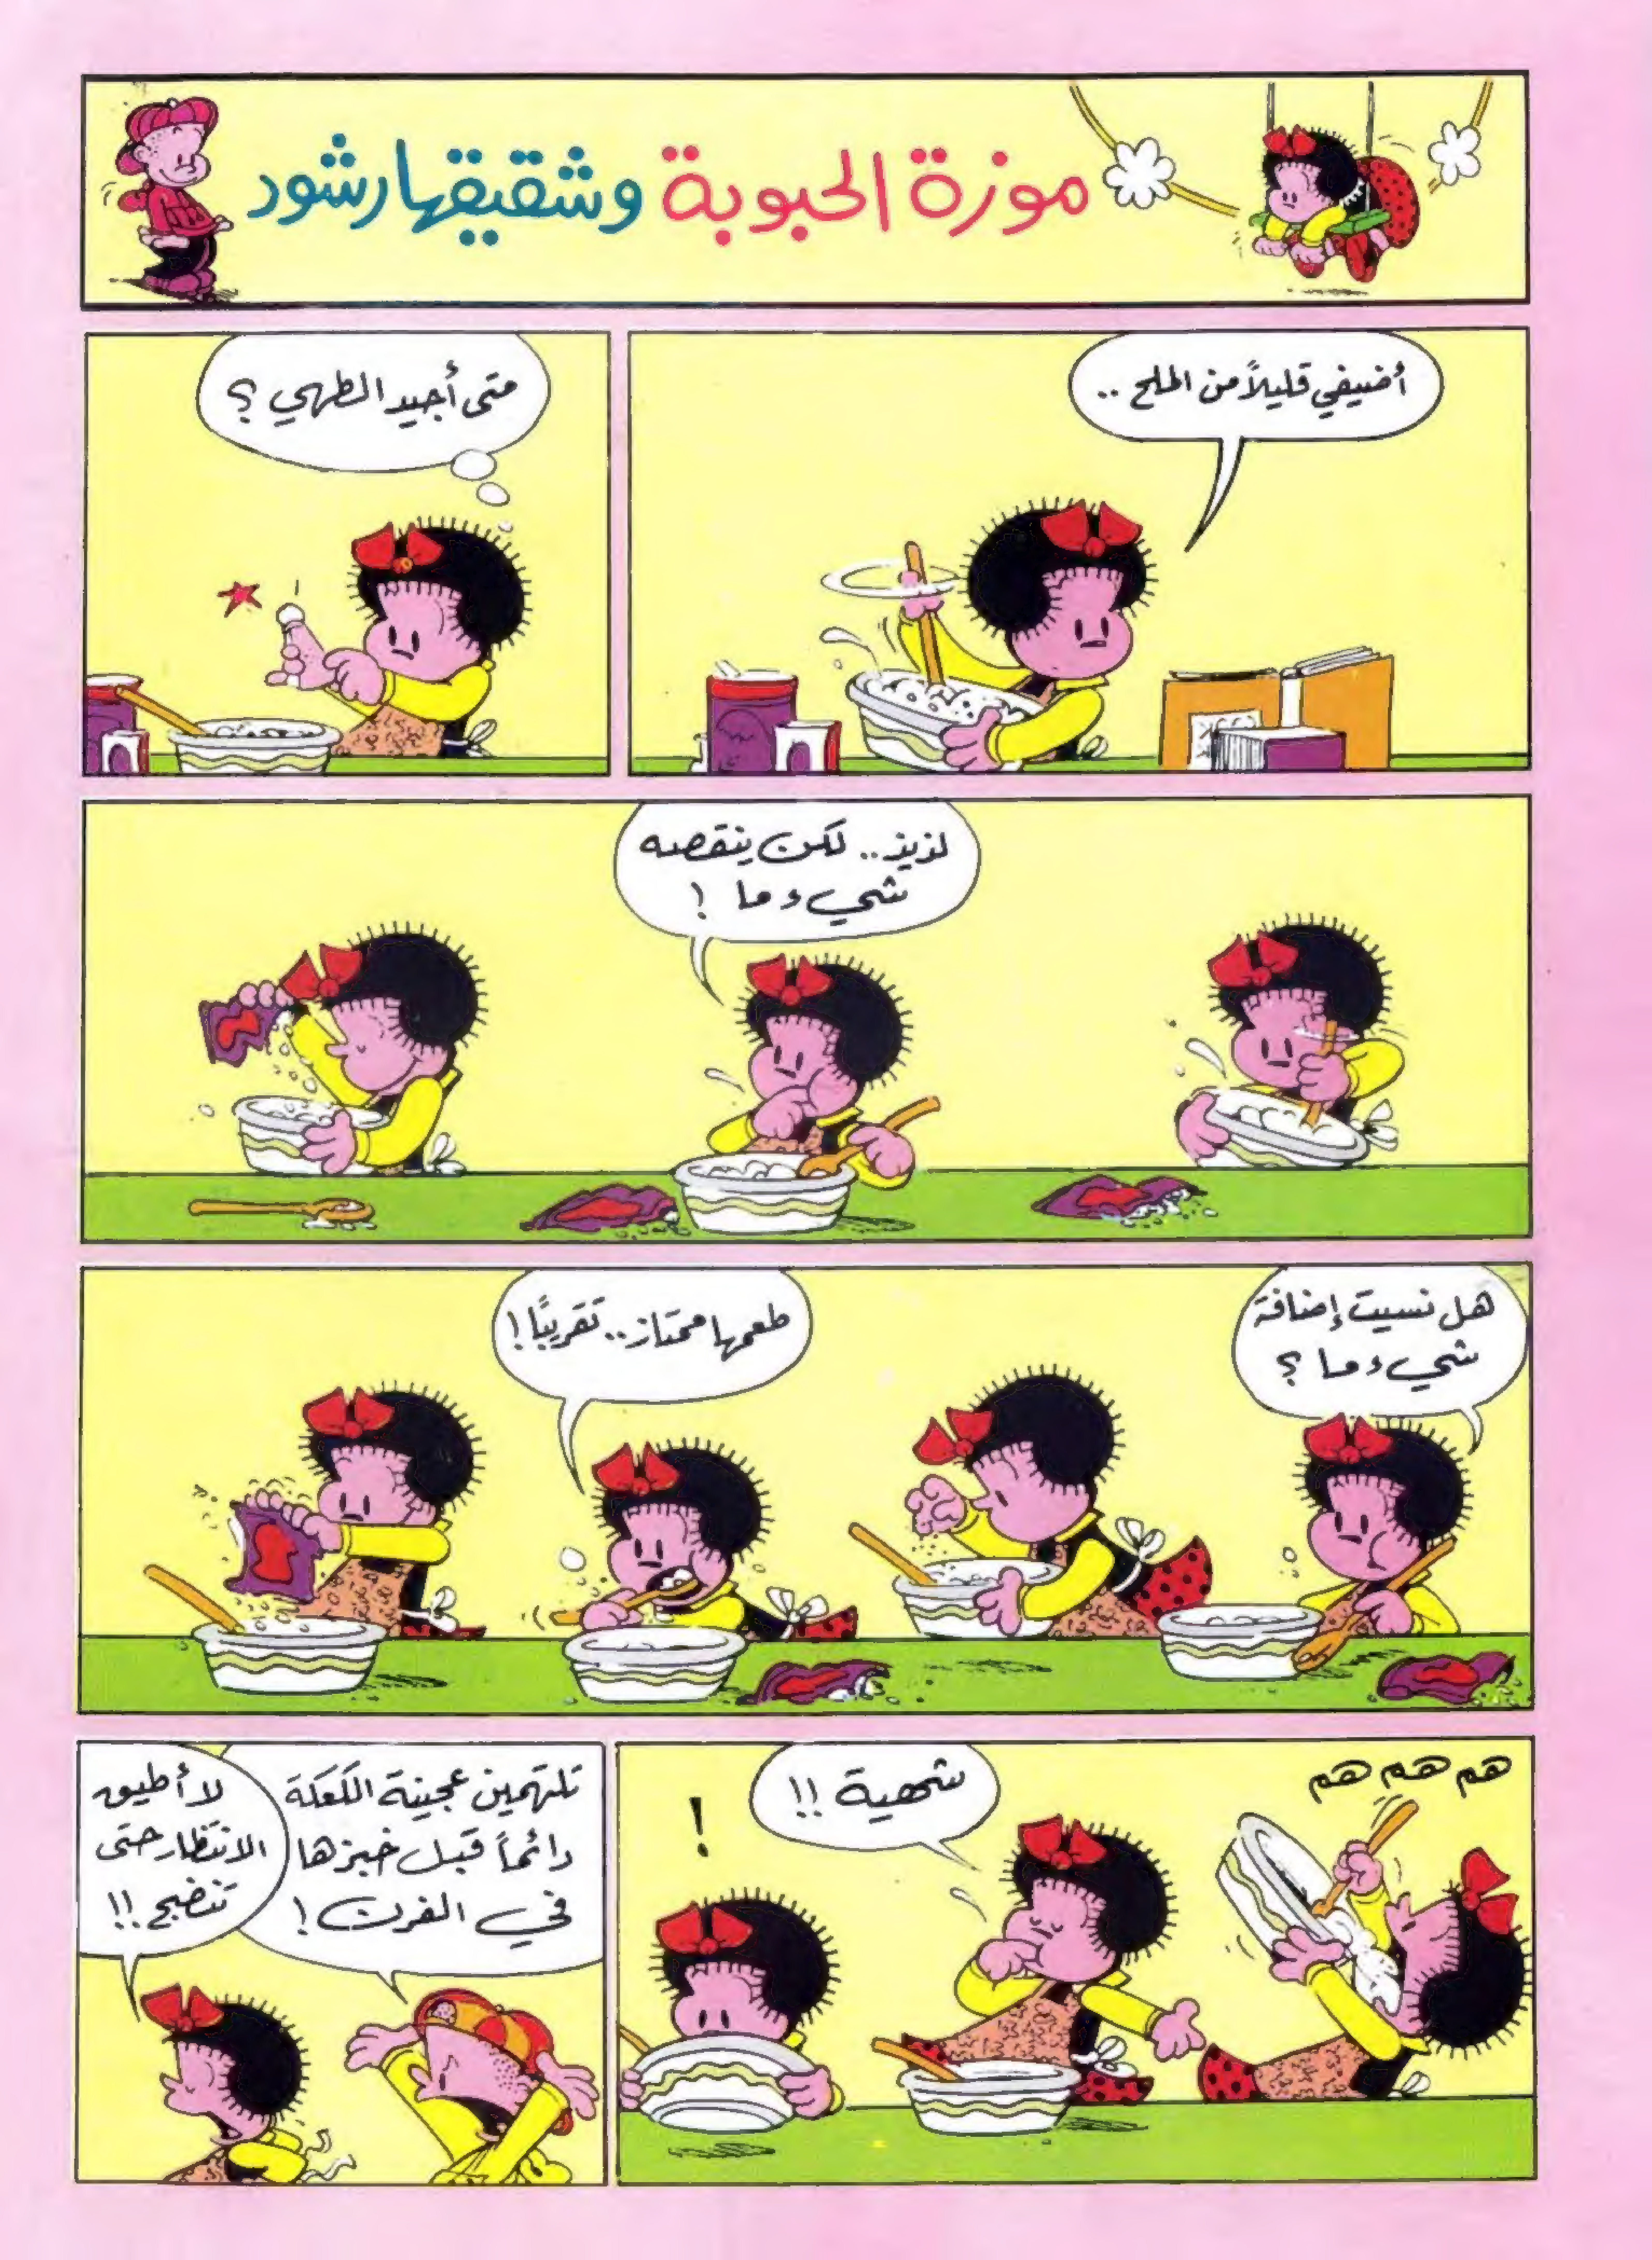 موزة الحبوبة وشقيقها رشود
أضيفي قليلاً من الملح ..
متى أجيد الطهي ؟
لذيذ .. لكن ينقصه
شيء ما !
هل نسيت إضافة
شيء ما ؟
طعمها ممتاز .. تقريبًا !
هم هم هم
شهية !!
!
تلتهمين عجينة الكعكة
دائماً قبل خبزها
في الفرن !
لا أطيق
الانتظار حتى
تنضج !!